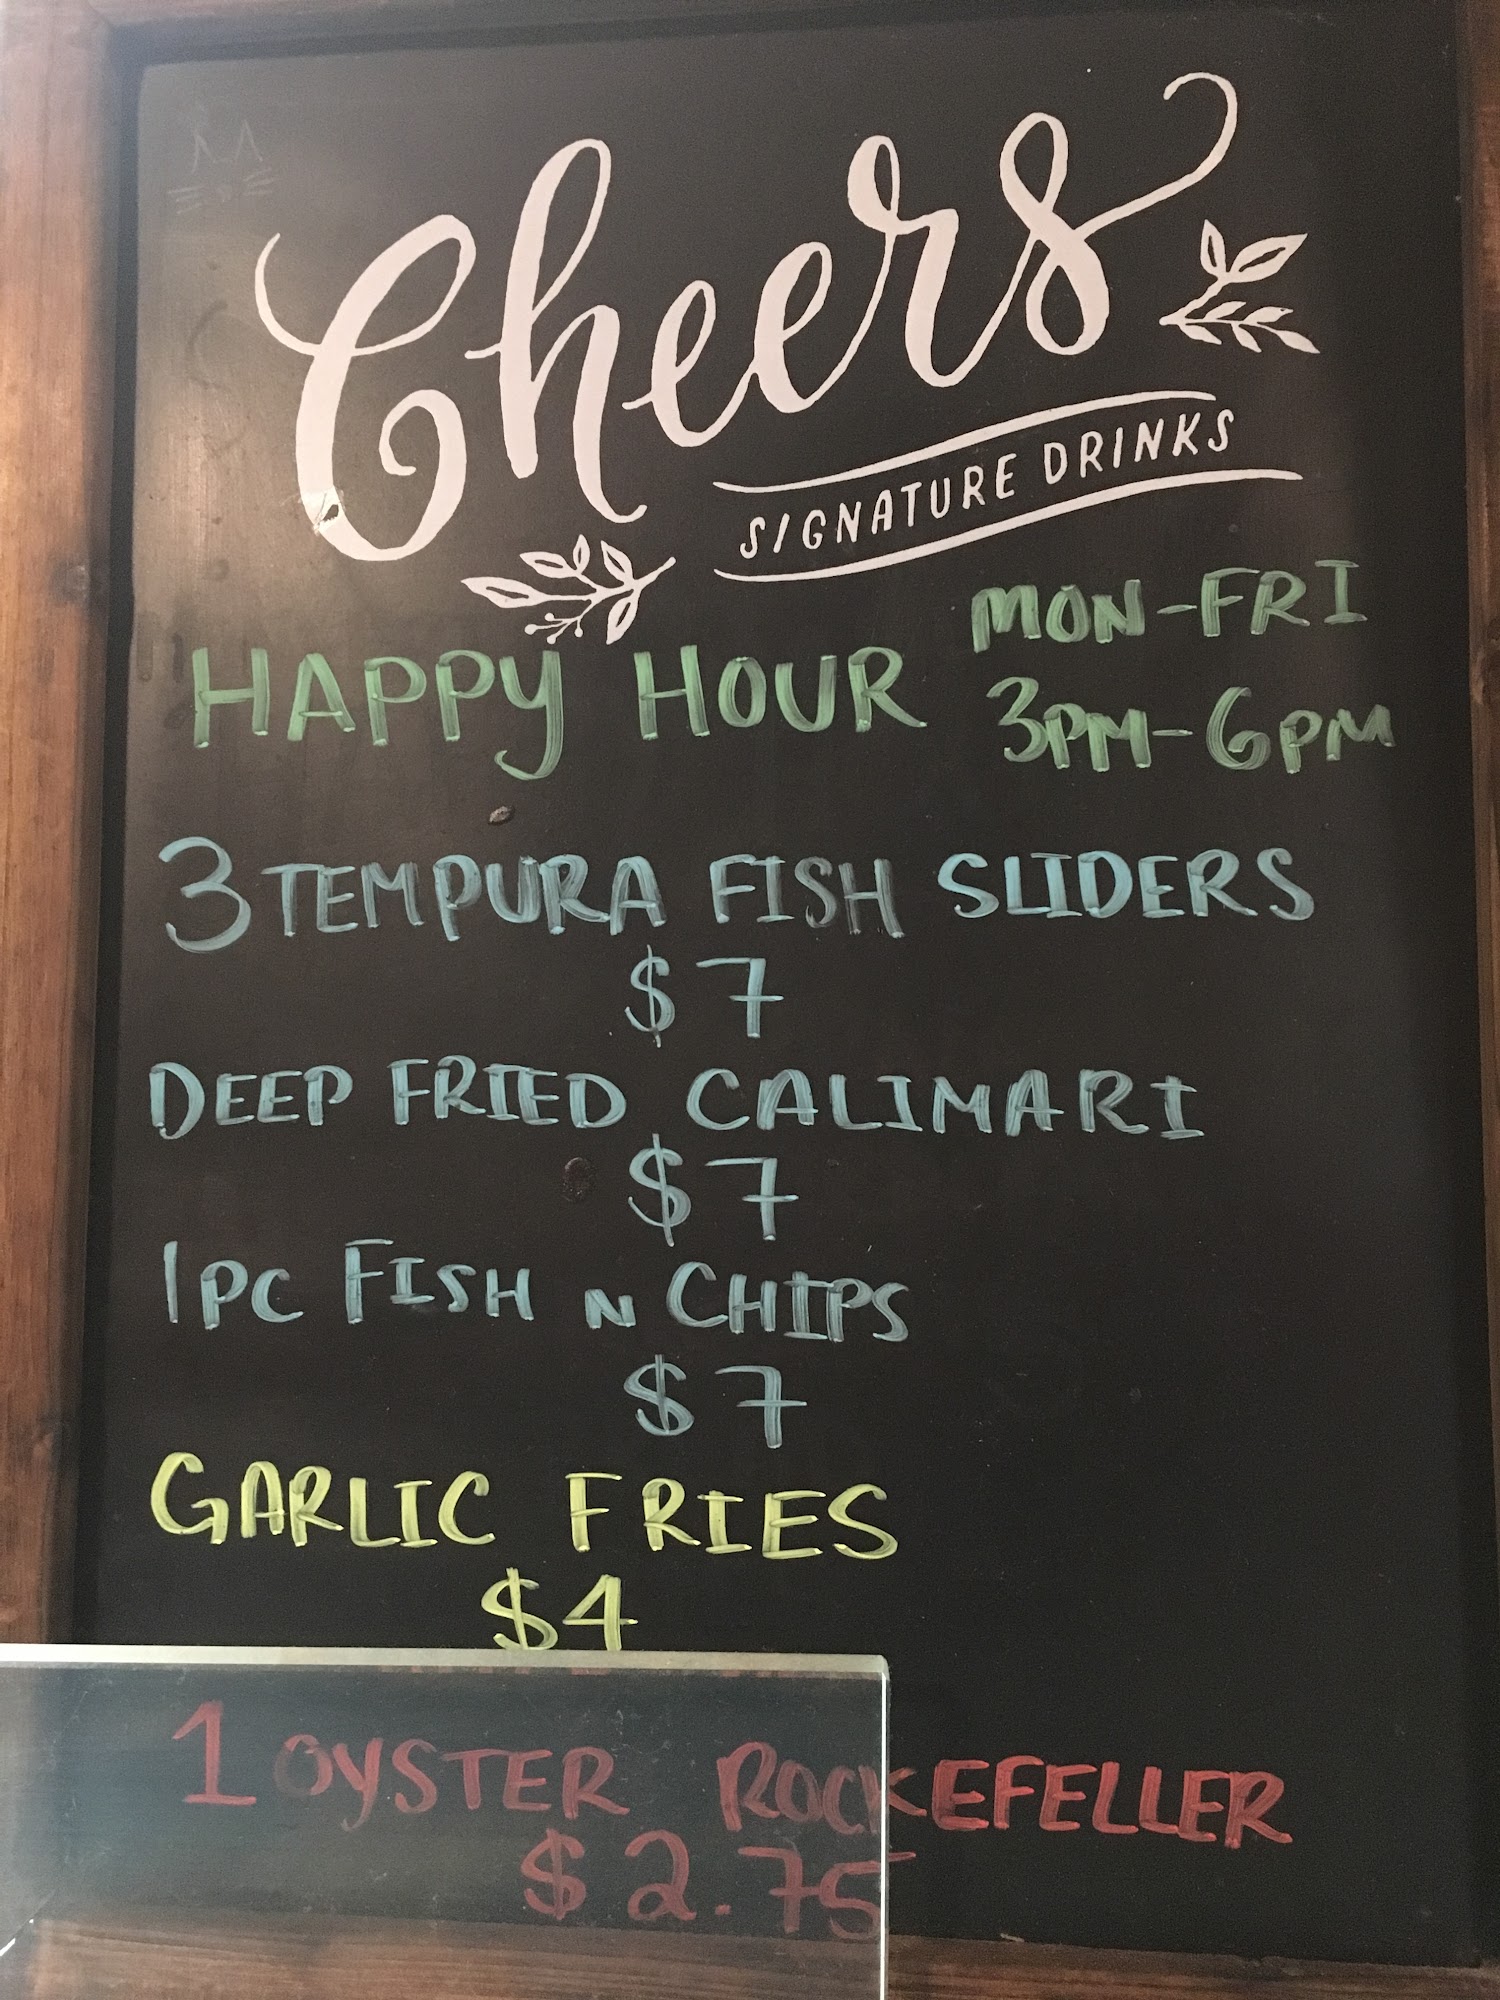 Cheers
SIGNATURE DRINKS
HAPPY HOUR
MON-FRI
3PM-6PM
3 TEMPURA FISH SLIDERS
$7
DEEP FRIED CALIMARI
$7
1 PC FISH N CHIPS
$7
GARLIC FRIES
$4
1 OYSTER ROCKEFELLER
$2.75